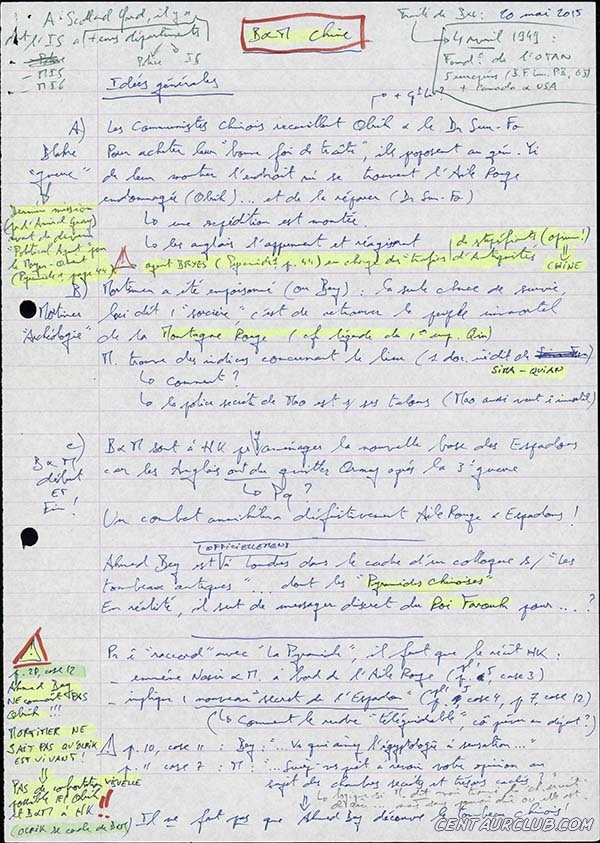 A Scotland Yard, il y a
dt l'IS a + eurs départements
Police IS
- MI5
- MI6
B&M Chine
Traité de Bxl : 20 mai 2015
4 avril 1949 :
Fond° de l'OTAN
+ Canada & USA
Idées générales
A)
Les Communistes Chinois recueillent Olrik & le Dr Sun-Fo
Blake
"guerre"
Pour acheter leur "bonne foi de traite", ils proposent au gén. Yi
de leur montrer l'endroit où se trouvent l'Aile Rouge
endommagée (Olrik)... et de la réparer (Dr Sun-Fo)
une expédition est montée
les anglais l'apprennent et réagissent
Dernière mission
(pr l'Amiral Gray)
avant de devenir
"Political Agent" pour
le Moyen-Orient
(Pyramide 1, page 44)
agent BRYES (Pyramide 1 p. 44) en charge des trafics d'Antiquités
de stupéfiants (opium!)
CHINE
B)
Mortimer
"Archéologie"
Mortimer a été empoisonné (ou Bey) : la seule chance de survie,
lui dit 1 "sorcière", c'est de retrouver le peuple immortel
de la Montagne Rouge (cf légende du 1er emp. Qin)
M. trouve des indices concernant le lieu (1 doc. inédit de
SIMA-QUIAN)
Comment ?
la police secrète de Mao est s/ ses talons (Mao aussi veut ê immortel)
C)
B&M
début
ET
Fin !
B&M sont à HK pr y aménager la nouvelle base des Espadons
car les Anglais ont dû quitter Ormuz après la 3e guerre
Pq ?
Un combat annihilera définitivement Aile Rouge & Espadons !
OFFICIELLEMENT
Ahmed Bey est à Londres dans le cadre d'un colloque s/ "Les
tombeaux antiques"... dont les "Pyramides Chinoises"
En réalité, il sert de messager discret du Roi Farouk pour ... ?
Pr ê "raccord" avec "La Pyramide", il faut que le récit HK :
- emmène Nasir & M. à bord de l'Aile Rouge
case 3)
- implique 1 nouveau "secret de l'Espadon"
p 7, case 12)
(Comment le rendre "téléguidable",
p. 28, case 12
Ahmed Bey
NE connaît PAS
Olrik !!!
MORTIMER NE
SAIT PAS QU'OLRIK
EST VIVANT !
p. 10, case 11 : Bey : "... Vs qui aimez l'égyptologie à sensation..."
p. 11 case 7 : M : "... Seriez-vs prêt à revoir votre opinion au
sujet des chambres secrètes et trésors cachés ?"
PAS de confrontation VISUELLE
possible ENTRE Olrik
ET B&M à HK !!
(OLRIK se cache de
Il ne faut pas que Ahmed Bey découvre le tombeau chinois !
CENTAURCLUB.COM